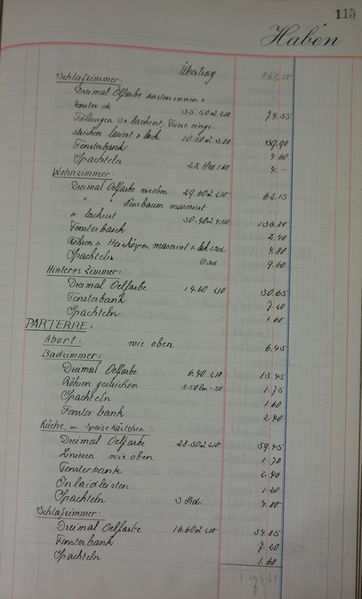 115
Haben
Übertrag
Schlafzimmer:
Dreimal Oelfarbe
Fenster 35.50 m² 2.10 74.55
Füllungen 3x lackiert, Türe
streichen lasiert & lack 10.50 m² 3.80 39.90
Fensterbank 4.60
Spachteln 2½ Std. 1.60 4.-
Wohnzimmer:
Dreimal Oelfarbe 29.60 m² 2.10 62.15
" " Nussbaum maseriert
& lackiert 30.40 m² 4.50 136.80
Fensterbank 2.40
Röhren & Heizkörper, maseriert & lack 4.80
Spachteln 6 Std. 9.60
Hinteres Zimmer:
Dreimal Oelfarbe 14.60 2.10 30.65
Fensterbank 7.20
Spachteln 1.60
PARTERRE:
Abort: wie oben 6.45
Badzimmer:
Dreimal Oelfarbe 6.40 2.10 13.45
Röhren gestrichen 3.50 m -.50 1.75
Spachteln 1.60
Fensterbank 2.40
Küche, m. Speisekästchen
Dreimal Oelfarbe 28.30 m² 2.10 59.45
Linieren wie oben 1.70
Fensterbank 2.40
Spachteln 3 Std. 4.80
Schlafzimmer:
Dreimal Oelfarbe 16.60 m² 2.10 34.85
Fensterbank 7.20
Spachteln 1.60